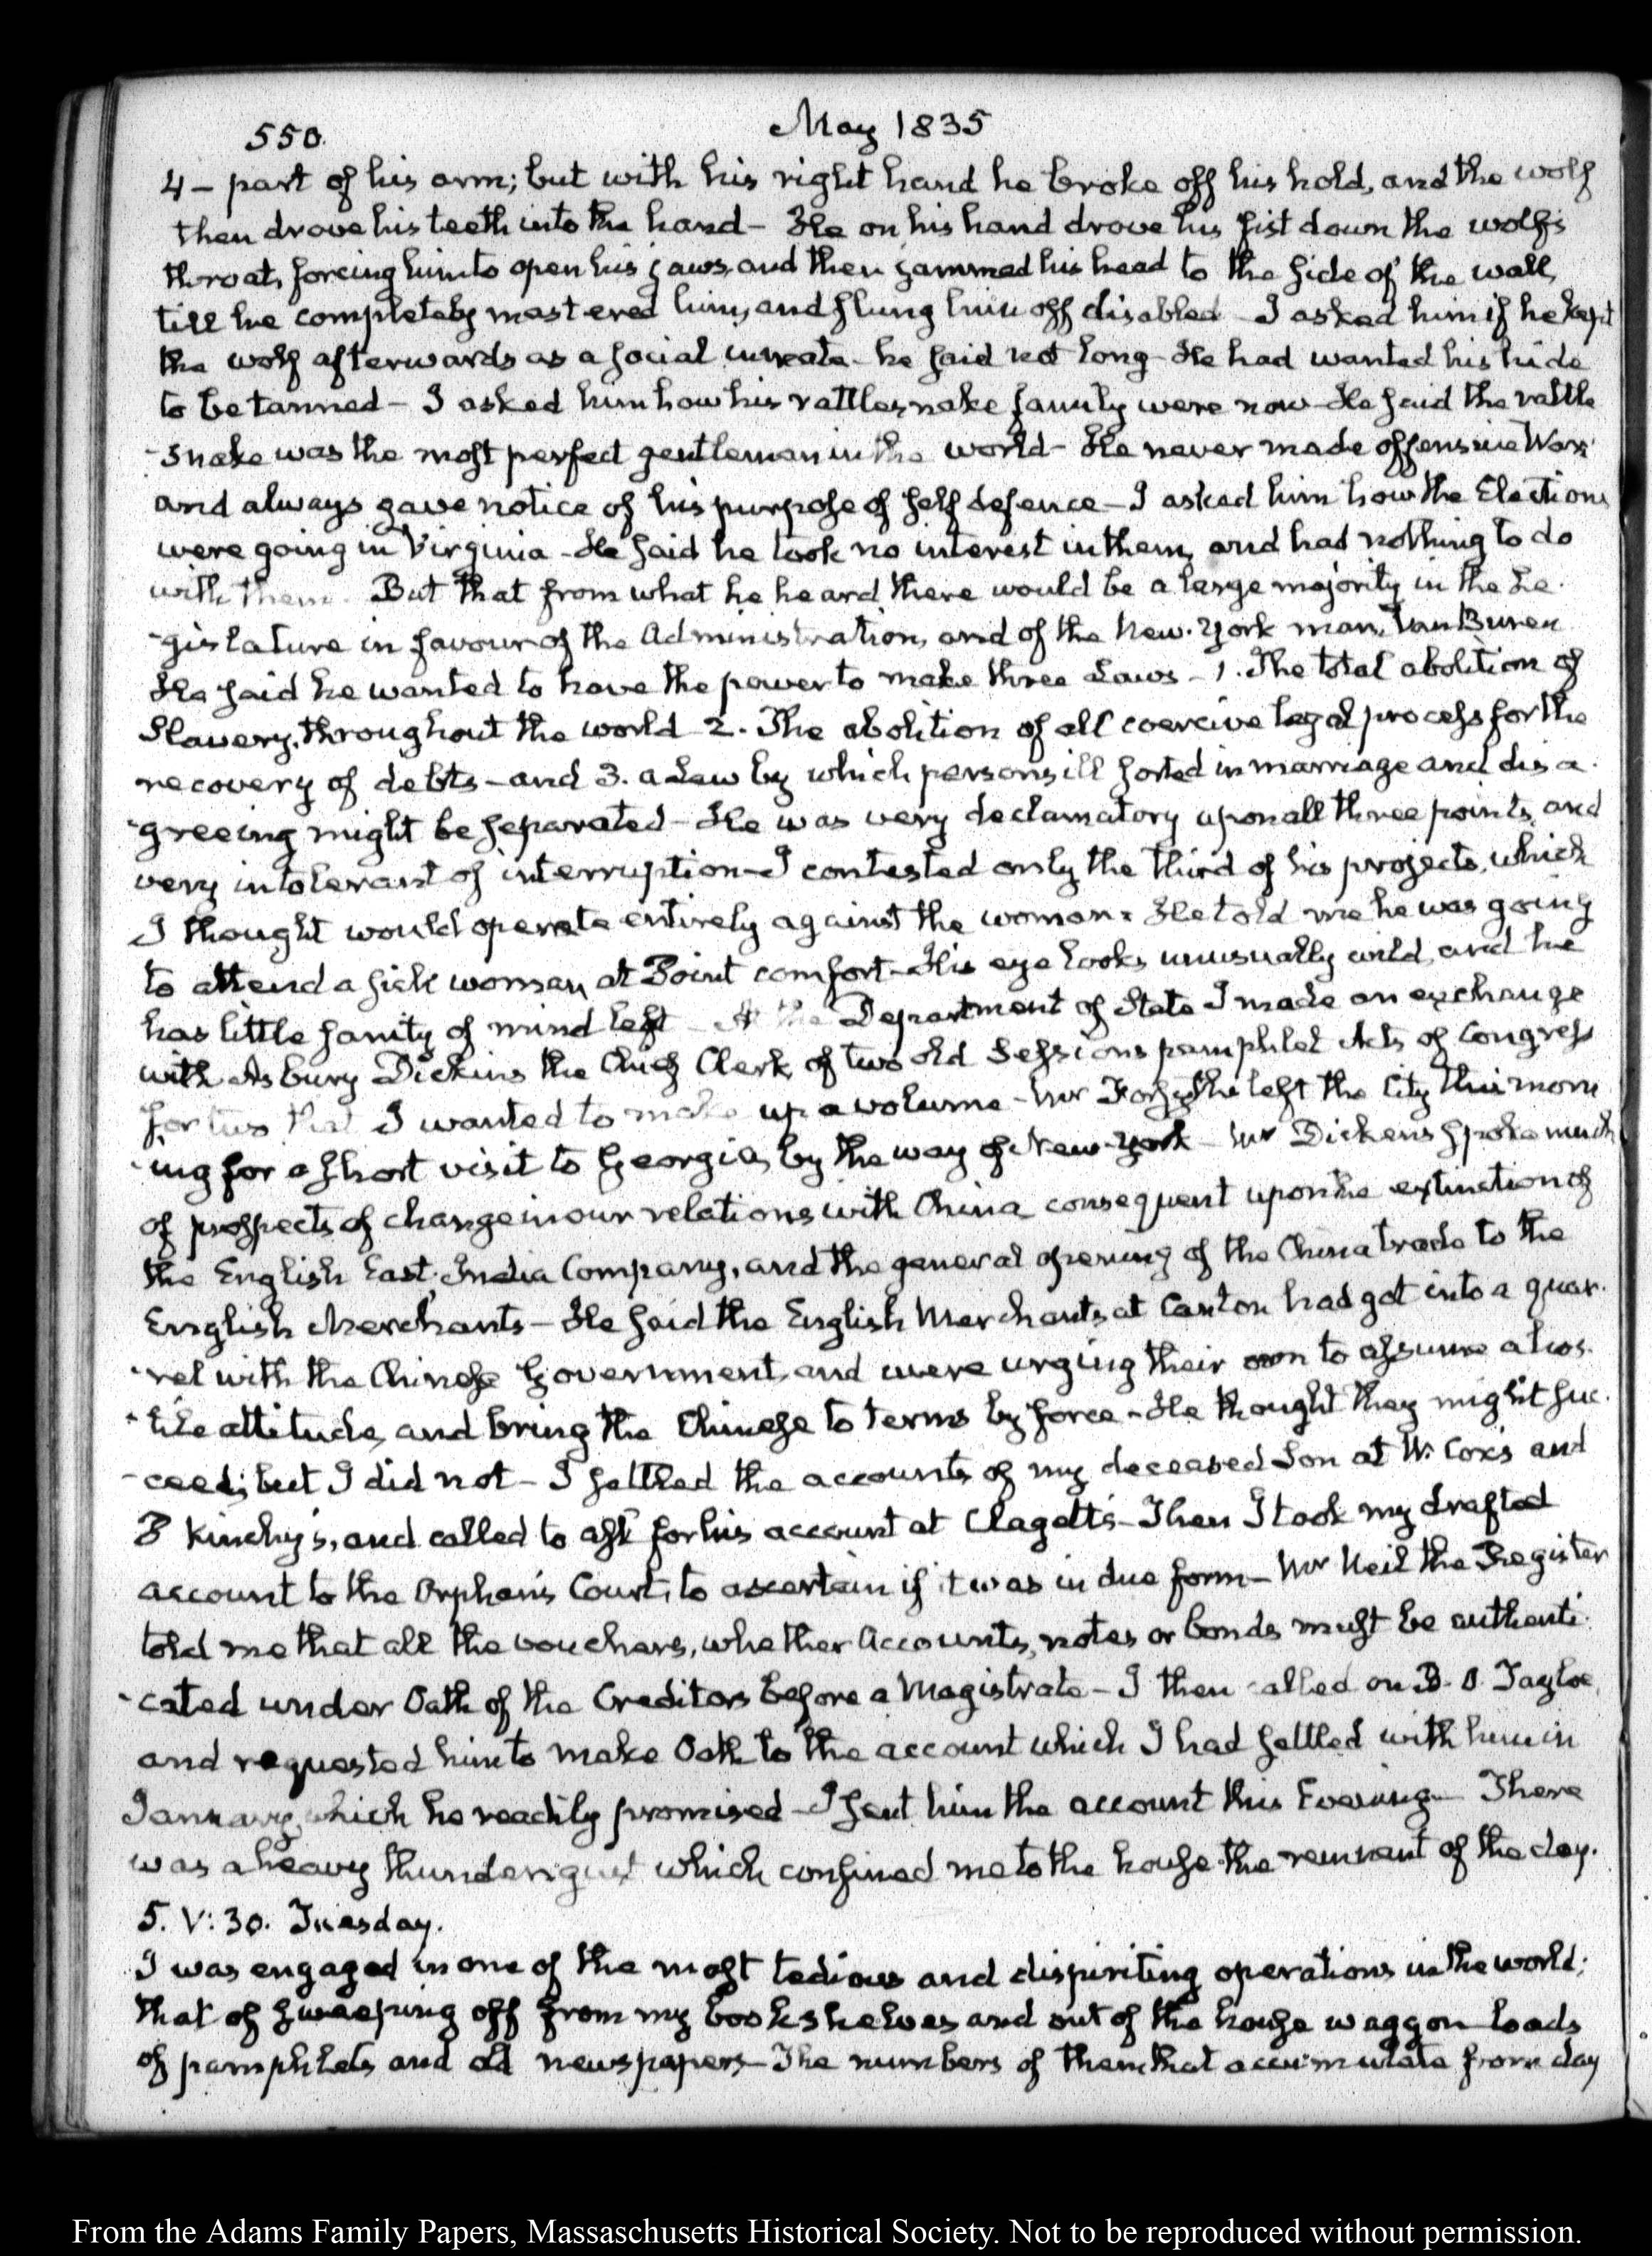 550.
May 1835
4 – part of his arm; but with his right hand he broke off his hold, and the wolf
then drove his teeth into the hand – He on his hand drove his fist down the wolf's
throat, forcing him to open his jaws, and then jammed his head to the side of the wall,
till he completely mastered him, and flung him off disabled I asked him if he kept
the wolf afterwards as a social inmate – he said not long – He had wanted his hide
to be tanned – I asked him how his rattlesnake family were now – He said the rattle
-snake was the most perfect gentleman in the world – He never made offensive War;
and always gave notice of his purpose of self defence – I asked him how the Elections
were going in Virginia – He said he took no interest in them, and had nothing to do
with them. But that from what he heard there would be a large majority in the Le-
-gislature in favour of the Administration, and of the New-York man, Van Buren
He said he wanted to have the power to make three Laws – 1. The total abolition of
Slavery, throughout the world 2. The abolition of all coercive legal process for the
recovery of debts – and 3. a Law by which persons ill sorted in marriage and disa-
-greeing might be separated – He was very declamatory upon all three points, and
very intolerant of interruption – I contested only the third of his projects, which
I thought would operate entirely against the woman. He told me he was going
to attend a sick woman, at Point comfort – His eye looks unusually wild, and he
has little sanity of mind left – At the Department of State I made an exchange
with Asbury Dickins the Chief Clerk, of two old Sessions pamphlet Acts of Congress
for two that I wanted to make up a volume – Mr Forsythe left the City this morn
-ing for a short visit to Georgia, by the way of New-York – Mr Dickens spoke much
of prospects of change in our relations with China consequent upon the extinction of
the English East-India Company, and the general opening of the China trade to the
English Merchants – He said the English Merchants at Canton had got into a quar-
-rel with the Chinese Government, and were urging their own to assume a hos-
-tile attitude, and bring the Chinese to terms by force – He thought they might suc-
-ceed; but I did not – I settled the accounts of my deceased Son at W. Cox's and
B Kinchy's, and called to ask for his account at Clagett's – Then I took my drafted
account to the Orphan's Court, to ascertain if it was in due form – Mr Neil the Register
told me that all the vouchers, whether Accounts, notes or bonds must be authenti-
-cated under Oath of the Creditors before a Magistrate – I then called on B. O. Tayloe,
and requested him to make Oath to the account which I had settled with him in
January, which he readily promised – I sent him the account this Evening – There
was a heavy thundergust which confined me to the house the remnant of the day.
5. V:30. Tuesday.
I was engaged in one of the most tedious and dispiriting operations in the world;
that of sweeping off from my bookshelves and out of the house waggon loads
of pamphlets and old newspapers – The numbers of them that accumulate from day
From the Adams Family Papers, Massachusetts Historical Society. Not to be reproduced without permission.